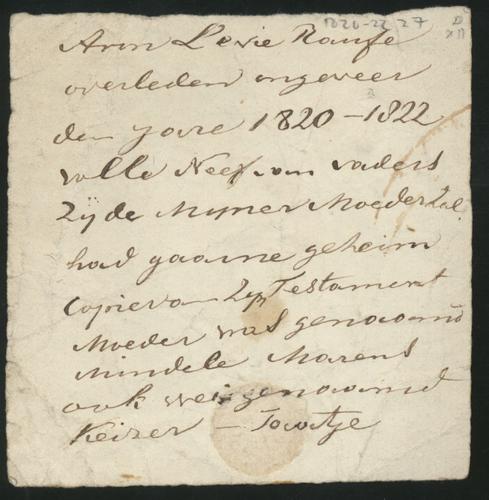 1820-22 27
Aron Levie
overleden ongeveer
den jare 1820 – 1822
volle Neef van vaders
Zyde Mijner Moeder Zal.
had gaarne geheim
Copie van Zyn Testament
Moeder was genaamd
Mindele Marens
ook wel genaamd
Keizer –